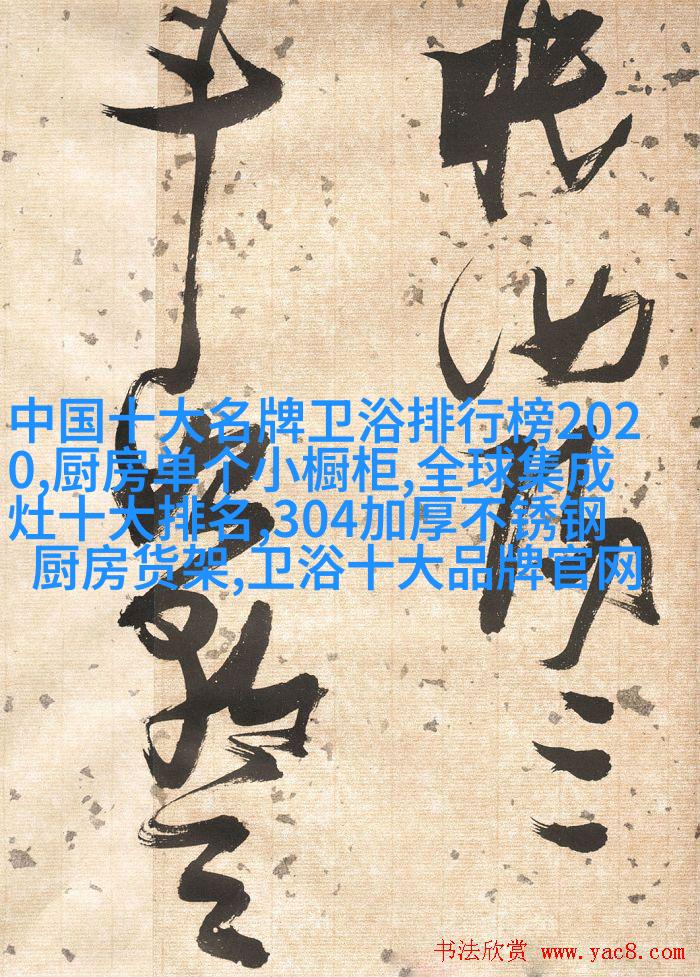 眠汝陽三
斗始朝天
中国十大名牌卫浴排行榜202
0,厨房单个小橱柜,全球集成
灶十大排名,304加厚不锈钢
厨房货架,卫浴十大品牌官网
书法欣赏 www.yac8.com